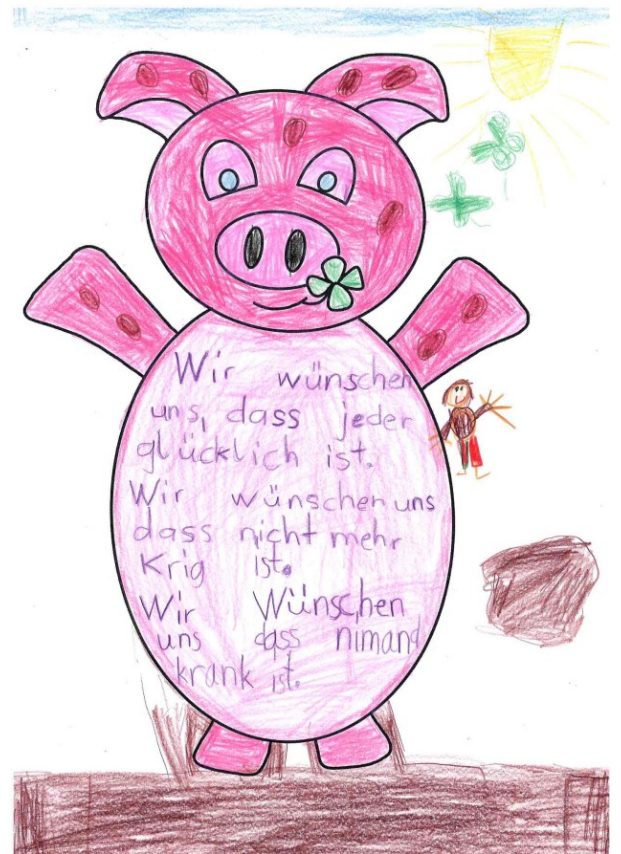 Wir wünschen
uns, dass jeder
glücklich ist.
Wir wünschen uns
dass nicht mehr
Krig ist.
Wir Wünschen
uns dass nimand
krank ist.